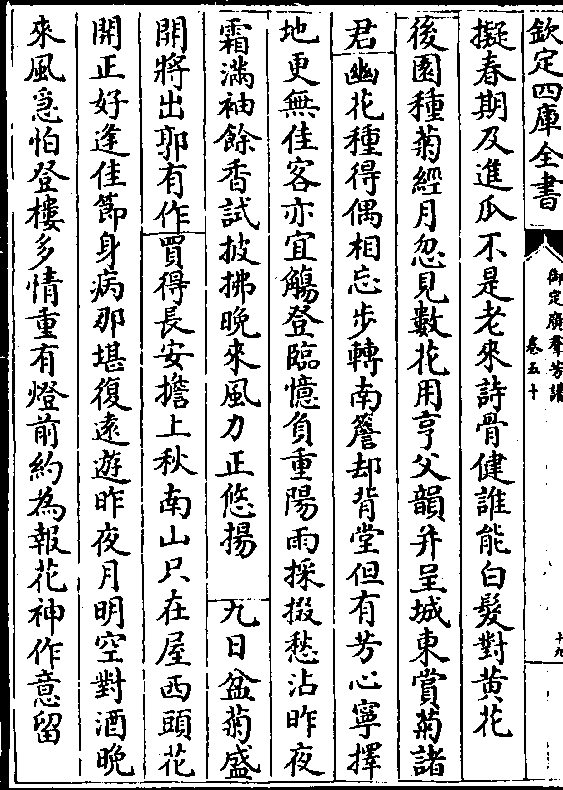 欽定四庫全書
御定廣羣芳譜
卷五十
十九
擬春期及進瓜不是老來詩骨健誰能白髮對黄花
後園種菊經月忽見數花用亨父韻并呈城東賞菊諸
君幽花種得偶相忘步轉南簷却背堂但有芳心寧擇
地更無佳客亦宜觴登臨憶負重陽雨採掇愁沾昨夜
霜滿袖餘香試披拂晚來風力正悠揚 九日盆菊盛
開將出郭有作買得長安擔上秋南山只在屋西頭花
開正好逢佳節身病那堪復遠遊昨夜月明空對酒晚
來風急怕登樓多情重有燈前約為報花神作意留